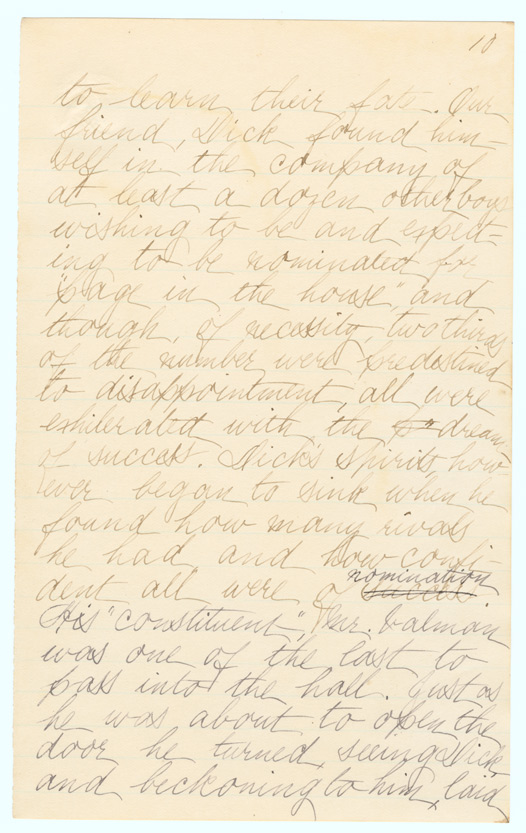 10
to learn their fate. Our
friend, Dick found him-
self in the company of
at least a dozen other boys
wishing to be and expect-
ing to be nominated for
"page in the house", and
though, of necessity, two thirds
of the number were predestined
to disappointment, all were
exhilerated with the dream
of success. Dick's spirits, how-
ever began to sink when he
found how many rivals
he had and how confi-
dent all were of nomination
His "constituent", Mr. Calman
was one of the last to
pass into the hall. Just as
he was about to open the
door he turned, seeing Dick,
and beckoning to him, laid